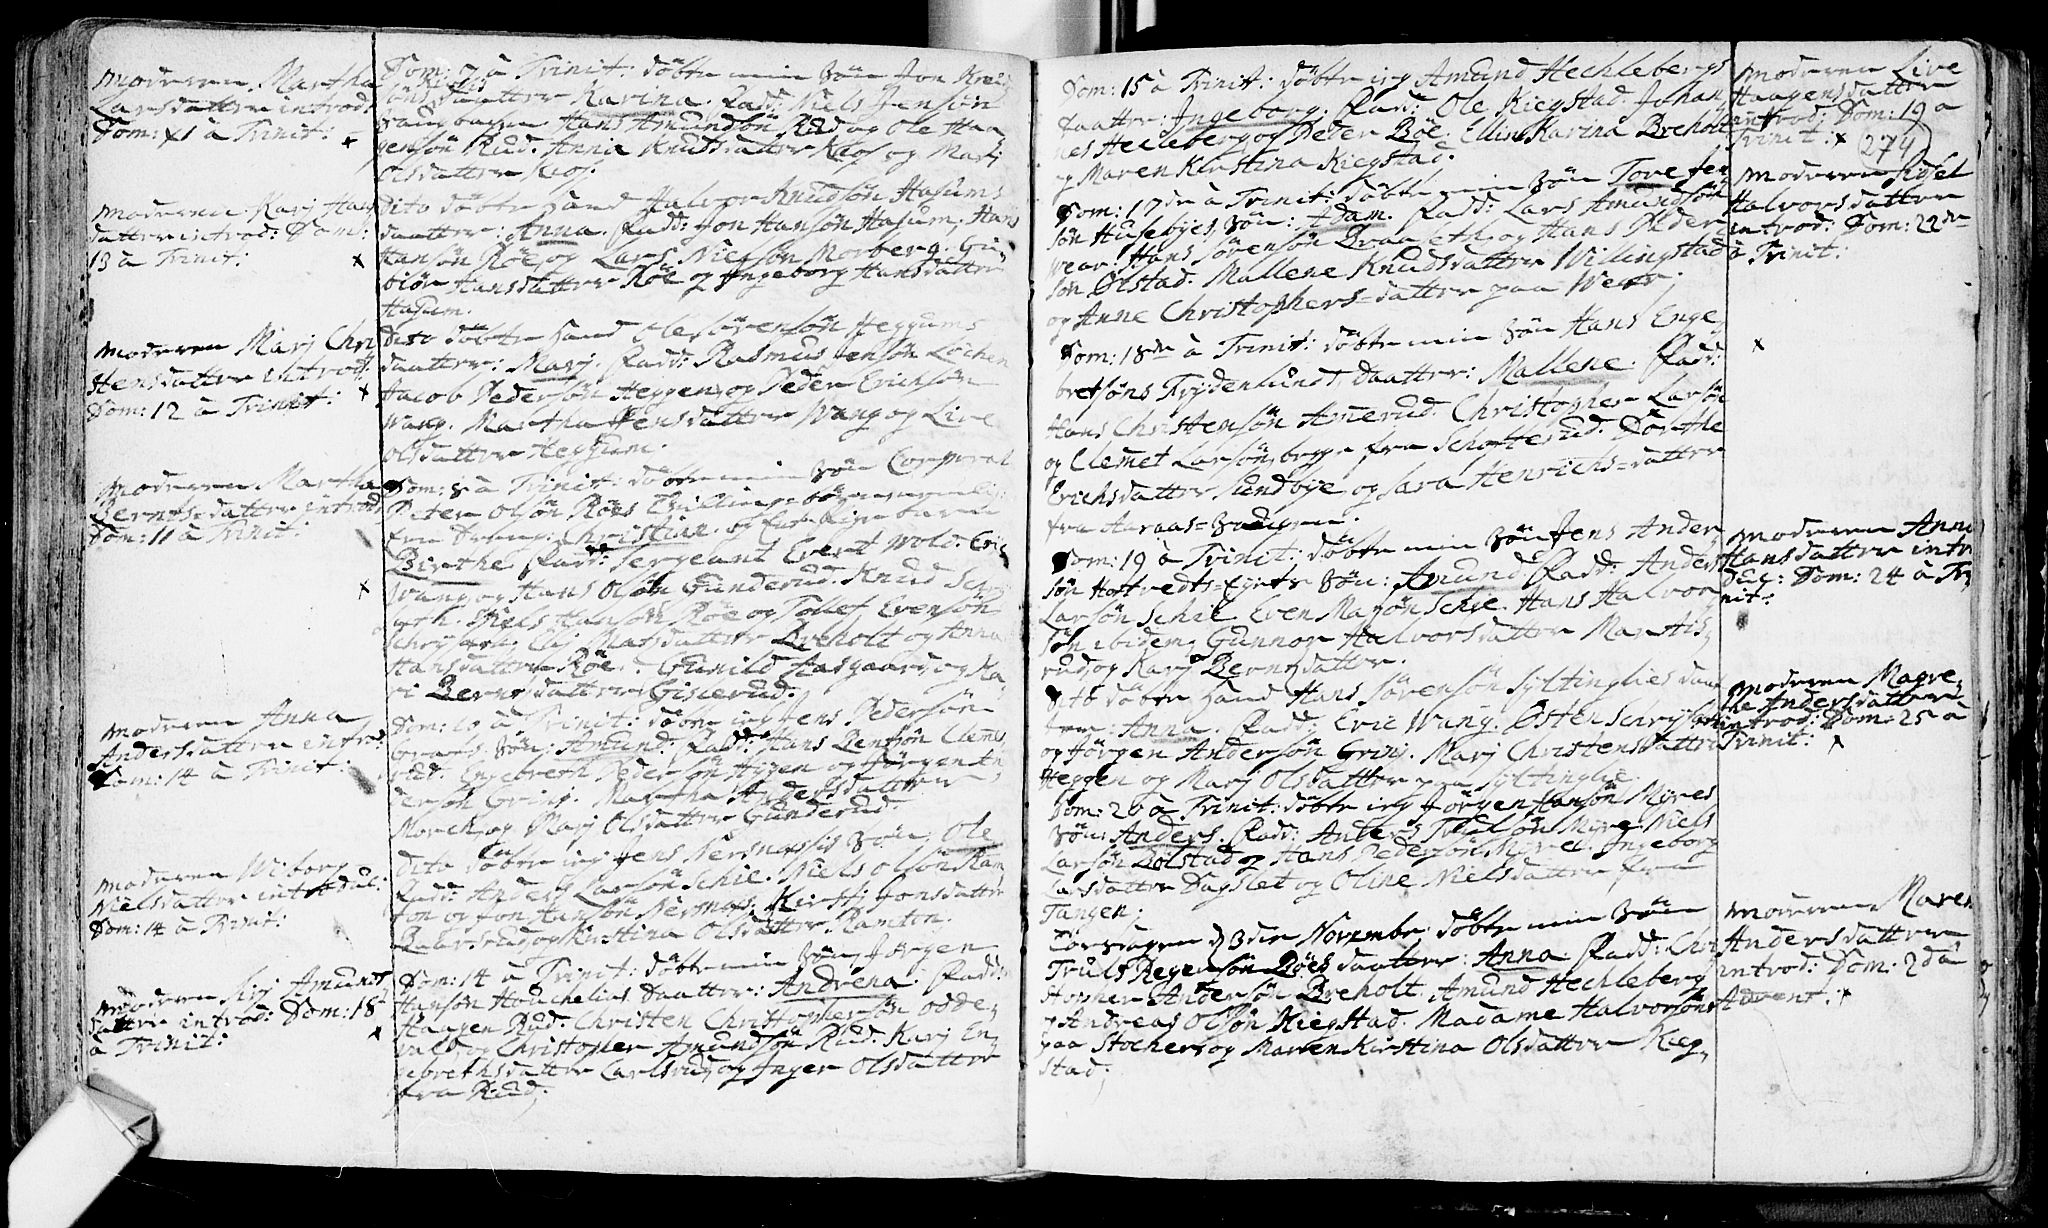 Moderen Martha
Larsdatter introd:
Dom: 11 à Trinit:
Moderen Karj Han
datter introd: Dom:
13 à Trinit:
Moderen Marj Chri
stensdatter introd:
Dom: 12 à Trinit:
Moderen Martha
Berntsdatter introd
Dom: 11 à Trinit:
Moderen Anna
Andersdatter introd:
Dom: 14 à Trinit:
Moderen Wiborg
Nielsdatter introdul:
Dom: 14 à Trinit:
Moderen Sirj Amunds
datter introd: Dom: 18
à Trinit:
Dom: 7 à Trinit: döbte min Sön Jon
Daatter Karina. Fadd: Niels Jensön
Hans Amundsön Rud og Ole Haa
gensön Rud. Anna Knudsdatter Klos og Marj
Olsdatter Klos.
Dito döbte hand Halvor Knudsön Hasums
daatter: Anna. Fadd: Jon Hansön Hasum. Hans
Hansön Röe og Lars Nielsön Morberg. Gu
biör Hansdatter Röe og Ingeborg Hansdatter
Hasum.
Dito döbte hand Ole Sörensön Heggums
daatter: Marj. Fadd: Rasmus Jensön Löchen
Jacob Pedersön Heggen, og Peder Ericsön
Wang. Martha Jensdatter Wang og Live
Olsdatter Heggum.
Dom: 8 à Trinit: döbte min Sön Corporal
Peter Olsön Röes Tvillinge-börn
een Dreng. Christian. og
Birthe Fadd: Sergeant Evert Wold. Eric
Wang og Hans Olsön Gunderud. Knud
Niels Hansön Röe og Tollef Evensön
Eli Matsdatter Breholt og Anna
Hansdatter Röe. Gunild Aasgaard, og Ka
ri Berntsdatter Giscerud.
Dom: 10 à Trinit: döbte ieg Jens Pedersön
Sön: Amund: Fadd: Hans Bentsön Clemes
rud. Engebreth Pedersön Higen og Jörgen An
dersön Grinj. Martha Andersdatter
Morck, og Marj Olsdatter Gunderud.
Dito döbte ieg Jens Nersnæsses Sön: Ole
Fadd: Anders Larsön Schie. Niels Olsön Ram
ton og Jon Hansön Nersnæs. Kirstj Jonsdatter
og Kirstina Olsdatter Ramton.
Dom: 14 à Trinit: döbte min Sön, Jörgen
Hansön Daatter: Andrena. Fadd:
Haagen Rud. Christen Christophersön Odde
vald, og Christopher Amundsön Rud. Karj En,
gebrethsdatter Carlsrud, og Inger Olsdatter
fra Rud.
Dom: 15 à Trinit: döbte ieg Amund Hechlebergs
daatter: Ingeborg. Fadd: Ole Kiegstad. Johan,
nes Hecleberg, og Peder Böe. Ellen Karina Breholt
og Maren Kirstina Kiegstad.
Dom: 17de à Trinit: döbte min Sön Tore Jen
sön Husebyes Sön: Adam. Fadd: Lars Amundsön
Wear. Hans Sörensön Braaseth, og Hans Peder
sön Ölstad. Mallene Knudsdatter Willingstad
og Anne Christophers-datter paa Wear.
Dom: 18de à Trinit: döbte min Sön Hans Enge,
bretsöns Trydenlund, daatter: Mallene. Fadd:
Hans Christensön Amerud. Christopher Larsön
og Clemet Larsön, begge fra Schotterud. Dorthe
Erichsdatter Sundbye og Sara Henrichs-datter
fra Aaraas-
Dom: 19 à Trinit: döbte min Sön Jens Ander,
sön Hottvedts-Eyets Sön: Amund. Fadd: Anders
Larsön Schie. Even Masön Schye. Hans Halvor,
sön ibidem. Gunnor Halvorsdatter Martis,
rud, og Karj Berntsdatter.
Dito döbte hand Hans Sörensön Syltinglies daat
ter: Anna. Fadd: Eric Wang. Östen
og Jörgen Andersön Grinj. Marj Christensdatter
Heggen og Marj Olsdatter paa Syltinglie.
Dom: 20 à Trinit: döbte ieg Jörgen Hansön Myres
Sön: Anders. Fadd: Anders Myre. Niels
Larsön Bölstad og Hans Pedersön Myre. Ingeborg
Larsdatter Dagslet og Oline Nielsdatter fra
Tangen.
Torsdagen d 3die Novembr. döbte min Sön
Truls Regensön Böes daatter: Anna. Fadd: Chri
stopher Andersön Breholt. Amund Hechleberg
og Andreas Olsön Kiegstad. Madame Halvorsöns
paa Stocher, og Maren Kirstina Olsdatter Kieg,
stad.
Moderen Live
Haagensdatter
introd: Dom: 19 à
Trinit:
274
Moderen Sidsel
Halvorsdatter
introd: Dom: 22de
à Trinit:
Moderen Anne
Hansdatter intro
duc: Dom: 24 à Tri
nit:
Moderen Magre,
the Andersdatter
introd: Dom: 25 à
Trinit:
Moderen Maren
Andersdatter
introd: Dom: 2 da
Advent: